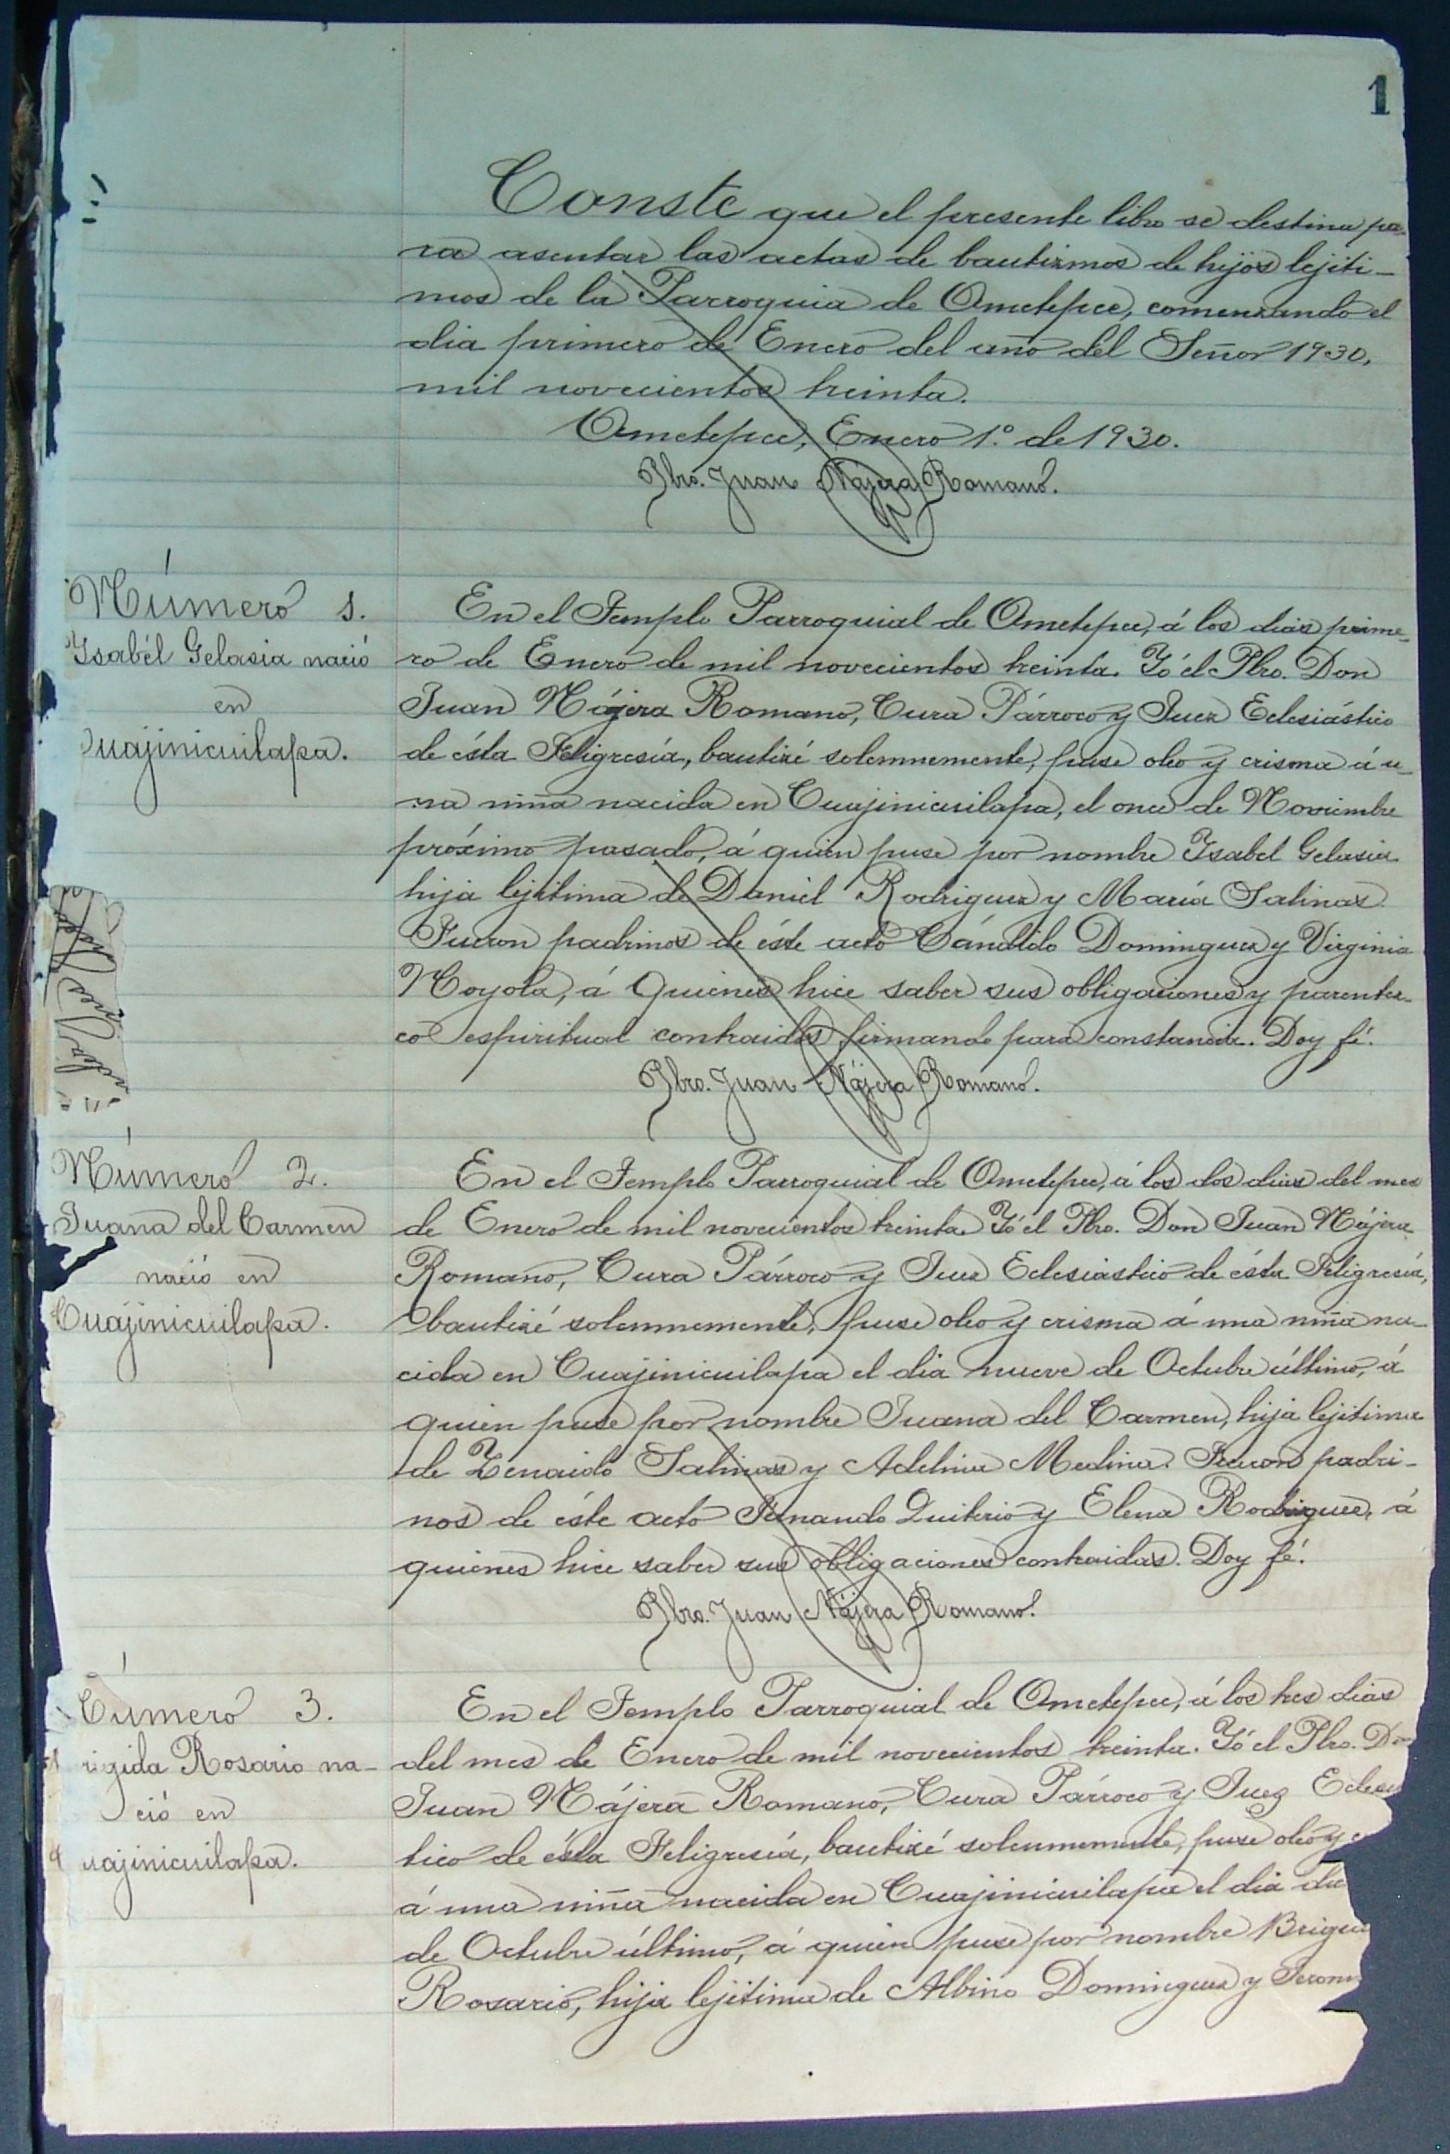 1
Conste que el presente libro se destina pa-
ra asentar las actas de bautizmos de hijos lejíti-
mos de la Parroquia de Ometepec, comenzando el
dia primero de Enero del año del Señor 1930,
mil novecientos treinta.
Ometepec, Enero 1.º de 1930.
Pbro. Juan Nájera Romano.
Número 1.
Ysabél Gelasia nació
en
uajinicuilapa.
En el Templo Parroquial de Ometepec, á los dias prime-
ro de Enero de mil novecientos treinta. Yó el Pbro. Don
Juan Nájera Romano, Cura Párroco y Juez Eclesiástico
de ésta Feligresía, bautizé solemnemente, puse oleo y crisma á u-
na niña nacida en Cuajinicuilapa, el once de Noviembre
próximo pasado, á quien puse por nombre Ysabel Gelasia
hija lejítima de Daniel Rodriguez y María Salinas.
Fueron padrinos de éste acto Cándido Dominguez y Virginia
Noyola, á quienes hice saber sus obligaciones y parentez-
co espiritual contraidos firmando para constancia. Doy fé.
Pbro. Juan Nájera Romano.
Número 2.
Juana del Carmen
nació en
Cuajinicuilapa.
En el Templo Parroquial de Ometepec, á los dos dias del mes
de Enero de mil novecientos treinta. Yó el Pbro. Don Juan Nájera
Romano, Cura Párroco y Juez Eclesiástico de ésta Feligresía,
bautizé solemnemente, puse oleo y crisma á una niña na-
cida en Cuajinicuilapa el dia nueve de Octubre último, á
quien puse por nombre Juana del Carmen, hija lejitima
de Zenaido Salinas y Adelina Medina. Fueron padri-
nos de éste acto Fernando Quiterio y Elena Rodriguez, á
quienes hice saber sus obligaciones contraidas. Doy fé.
Pbro. Juan Nájera Romano.
úmero 3.
rigida Rosario na-
ció en
uajinicuilapa.
En el Templo Parroquial de Ometepec, á los tres dias
del mes de Enero de mil novecientos treinta. Yó el Pbro. Do
Juan Nájera Romano, Cura Párroco y Juez Ecles
tico de ésta Feligresía, bautizé solemnemente, puse oleo y c
á una niña nacida en Cuajinicuilapa el dia
de Octubre último, á quien puse por nombre Brig
Rosario, hija lejitima de Albino Dominguez y Jeron